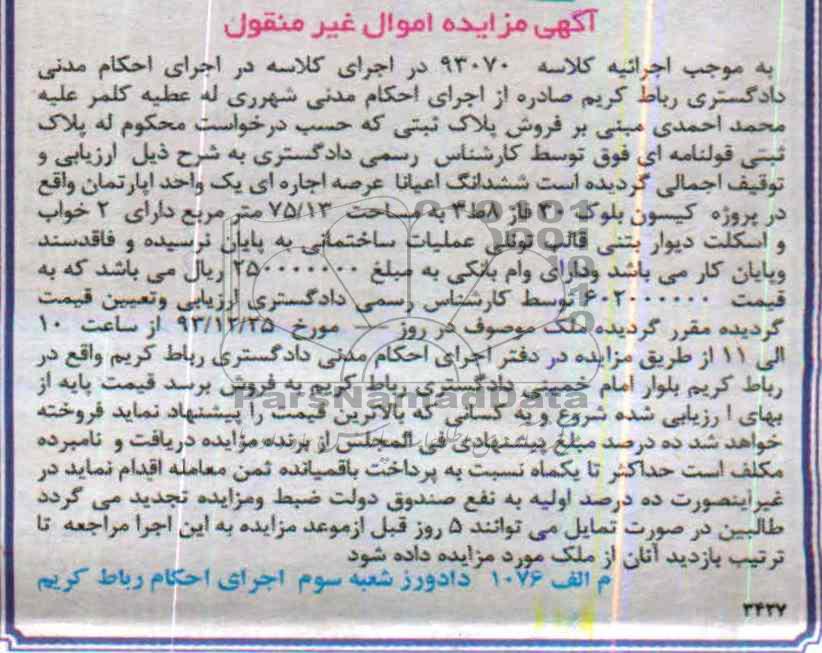 آگهی مزایده اموال غیر منقول
به موجب اجرائیه کلاسه ۹۳۰۷۰ در اجرای کلاسه در اجرای احکام مدنی
دادگستری رباط کریم صادره از اجرای احکام مدنی شهرری له عطیه کلمر علیه
محمد احمدی مبنی بر فروش پلاک ثبتی که حسب درخواست محکوم له پلاک
ثبتی قولنامه ای فوق توسط کارشناس رسمی دادگستری به شرح ذیل ارزیابی و
توقیف اجمالی گردیده است ششدانگ اعیانا عرصه اجاره ای یک واحد اپارتمان واقع
در پروژه کیسون بلوک ۲۰ فاز ۸ط۳ به مساحت ۷۵/۱۳ متر مربع دارای ۲ خواب
و اسکلت دیوار بتنی قالب تونلی عملیات ساختمانی به پایان نرسیده و فاقدسند
وپایان کار می باشد ودارای وام بانکی به مبلغ ۲۵۰۰۰۰۰۰۰ ریال می باشد که به
قیمت ۶۰۲۰۰۰۰۰۰ توسط کارشناس رسمی دادگستری ارزیابی وتعیین قیمت
گردیده مقرر گردیده ملک موصوف در روز --- مورخ ۹۳/۱۲/۲۵ از ساعت ۱۰
الی ۱۱ از طریق مزایده در دفتر اجرای احکام مدنی دادگستری رباط کریم واقع در
رباط کریم بلوار امام خمینی دادگستری رباط کریم به فروش برسد قیمت پایه از
بهای ا رزیابی شده شروع و به کسانی که بالاترین قیمت را پیشنهاد نماید فروخته
خواهد شد ده درصد مبلغ پیشنهادی فی المجلس از برنده مزایده دریافت و نامبرده
مکلف است حداکثر تا یکماه نسبت به پرداخت باقمیانده ثمن معامله اقدام نماید در
غیراینصورت ده درصد اولیه به نفع صندوق دولت ضبط ومزایده تجدید می گردد
طالبین در صورت تمایل می توانند ۵ روز قبل ازموعد مزایده به این اجرا مراجعه تا
ترتیب بازدید آنان از ملک مورد مزایده داده شود
م الف ۱۰۷۶ دادورز شعبه سوم اجرای احکام رباط کریم
۳۴۳۷
ParsNamadData